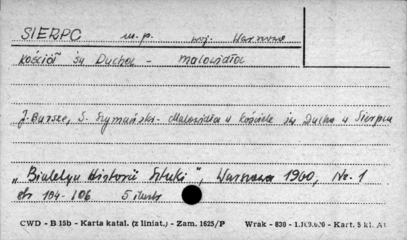 SIERPC m.p. woj. Warszawa
Kościół św Ducha - malowidła
J. Bursze, S. Szymański - Malowidła w kościele św Ducha w Sierpcu
„Biuletyn Historii Sztuki", Warszawa 1960, Nr. 1
str 104-106 5 ilustr
CWD - B 15b - Karta katal. (z liniat.) - Zam. 1625/P Wrak - 830 - Kart. 5 kl. A1